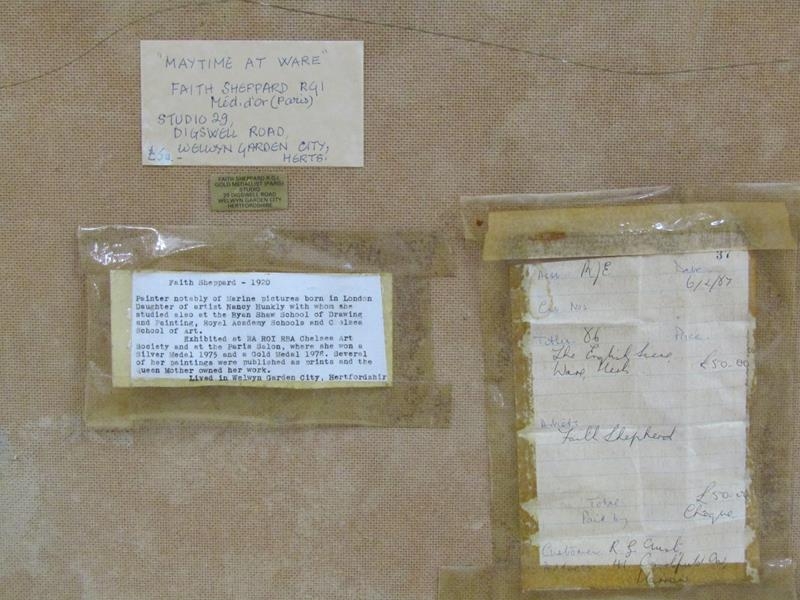 "MAYTIME AT WARE"
FAITH SHEPPARD RGI
Méd. d'or (Paris)
STUDIO 29,
DIGSWELL ROAD,
WELWYN GARDEN CITY,
HERTS.
FAITH SHEPPARD R.G.I.
GOLD MEDALLIST (PARIS)
STUDIO
29 DIGSWELL ROAD
WELWYN GARDEN CITY
HERTFORDSHIRE
Faith Sheppard - 1920
Painter notably of Marine pictures born in London
Daughter of artist Nancy Hunkly with whom she
studied also at the Byan Shaw School of Drawing
and Painting, Royal Academy Schools and Chelsea
School of Art.
Exhibited at RA ROI RBA Chelsea Art
Society and at the Paris Salon, where she won a
Silver Medel 1975 and a Gold Medel 1978. Several
of her paintings were published as prints and the
Queen Mother owned her work.
Lived in Welwyn Garden City, Hertfordshir
37
A/E Date
6/2/87
Cat. Nos
86 Price
The English Scene
Ware, £50.00
Artist
Faith Shepherd
Total £50.00
Paid by Cheque
Customer R. G.
41
Harrow